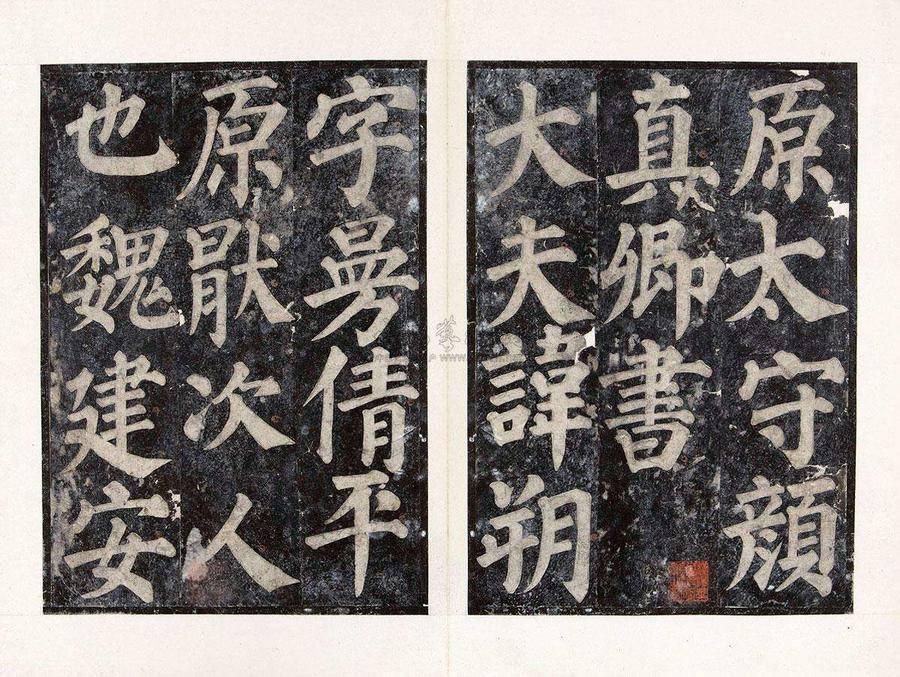 原太守顏
真卿書
大夫諱朔
字曼倩平
原厭次人
也魏建安